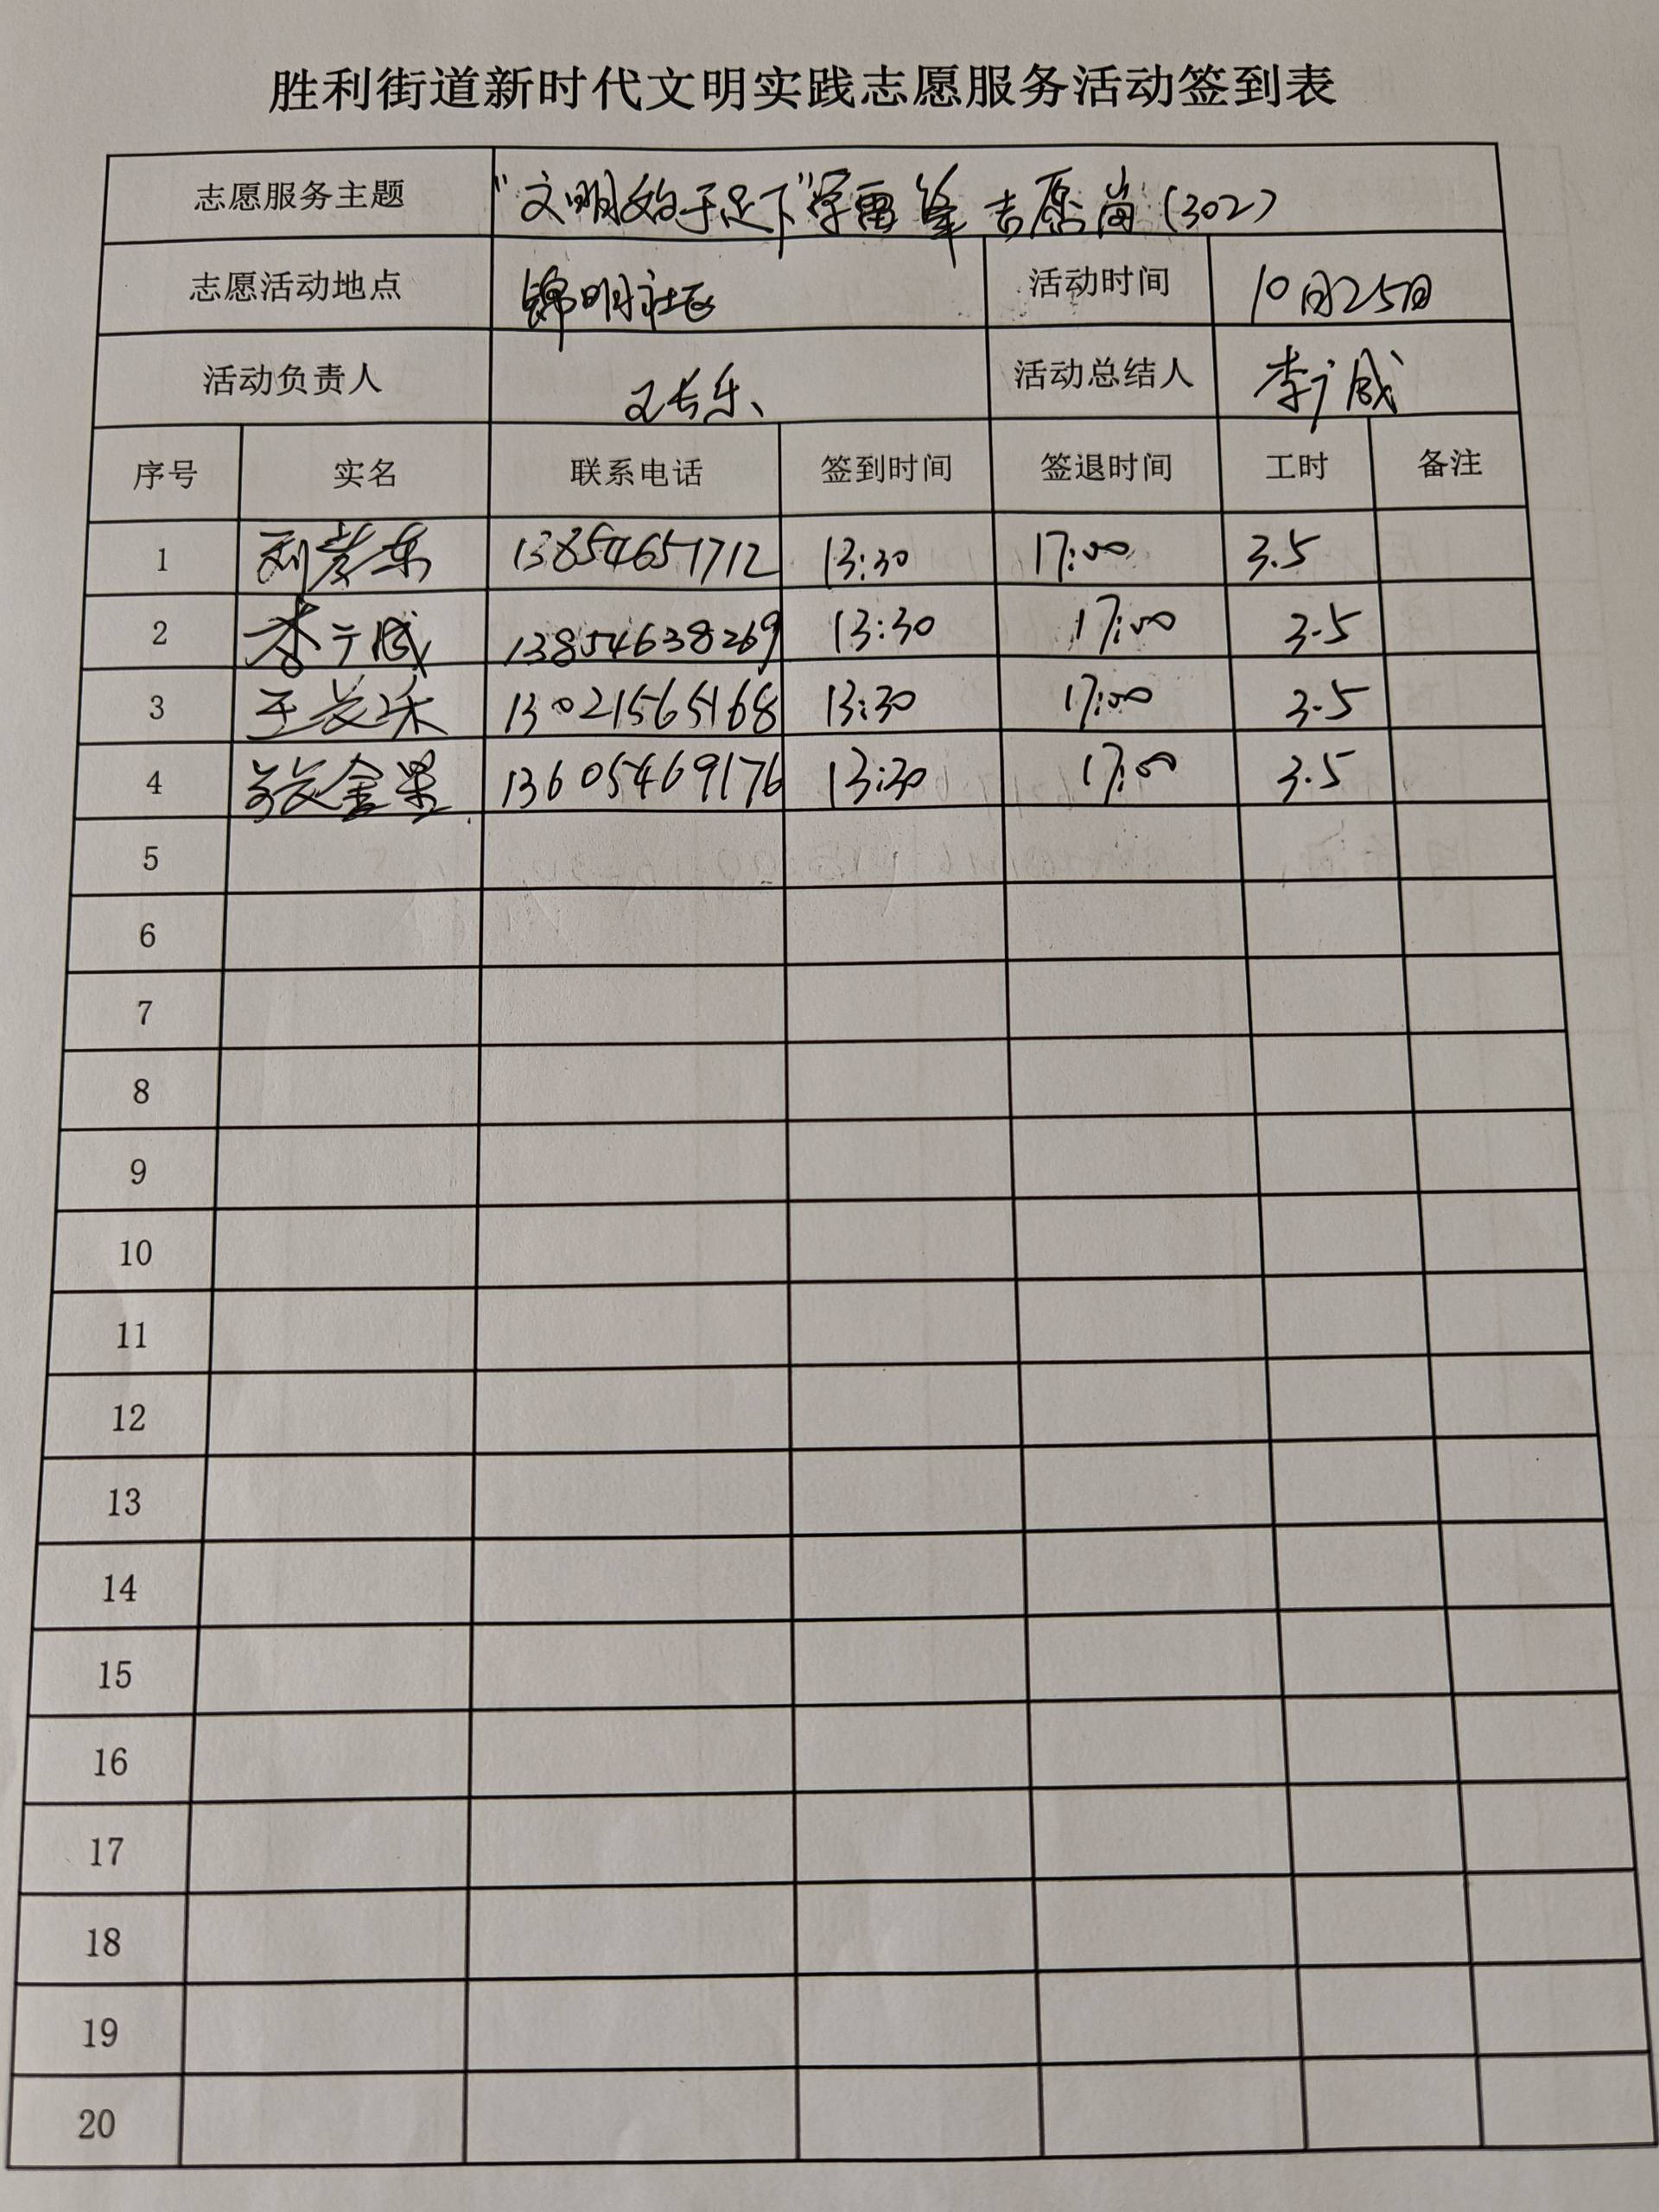 胜利街道新时代文明实践志愿服务活动签到表
志愿服务主题 "文明始于足下"学雷锋志愿岗(302)
志愿活动地点 锦明社区 活动时间 10月25日
活动负责人 王长乐 活动总结人 李广成
序号 实名 联系电话 签到时间 签退时间 工时 备注
1 13854651712 13:30 17:00 3.5
2 李广成 13854638269 13:30 17:00 3.5
3 13021565168 13:30 17:00 3.5
4 13605469176 13:30 17:00 3.5
5
6
7
8
9
10
11
12
13
14
15
16
17
18
19
20